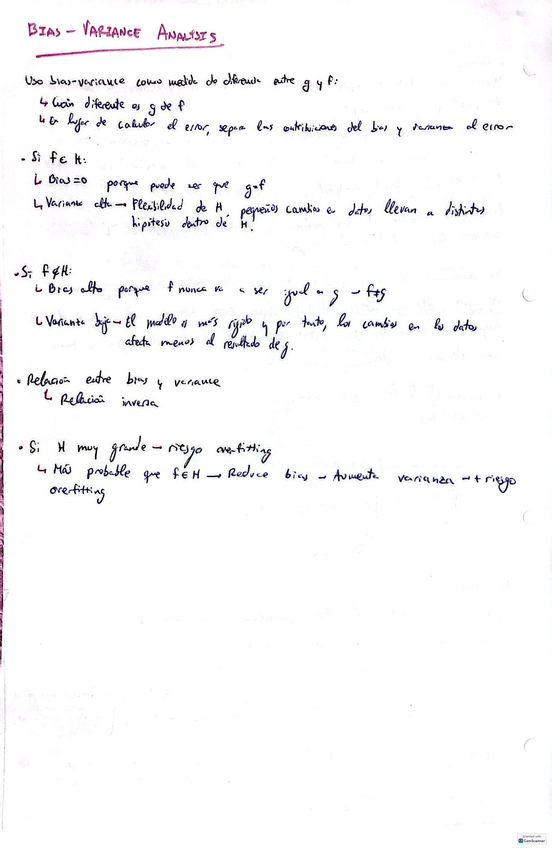 BIAS - VARIANCE ANALYSIS
Uso bias-variance como medida de diferencia entre g y f:
↳ Cuán diferente es g de f
↳ En lugar de calcular el error, separa las contribuciones del bias y varianza al error
• Si f ∈ H:
↳ Bias=0 porque puede ser que g=f
↳ Varianza alta → Flexibilidad de H, pequeños cambios en datos llevan a distintas
hipótesis dentro de H.
• Si f ∉ H:
↳ Bias alto porque f nunca va a ser igual a g → f≠g
↳ Varianza baja → El modelo es más rígido y por tanto, los cambios en los datos
afecta menos al resultado de g.
• Relación entre bias y variance
↳ Relación inversa
• Si H muy grande → riesgo overfitting
↳ Más probable que f ∈ H → Reduce bias → Aumenta varianza → + riesgo
overfitting
Scanned with
CamScanner